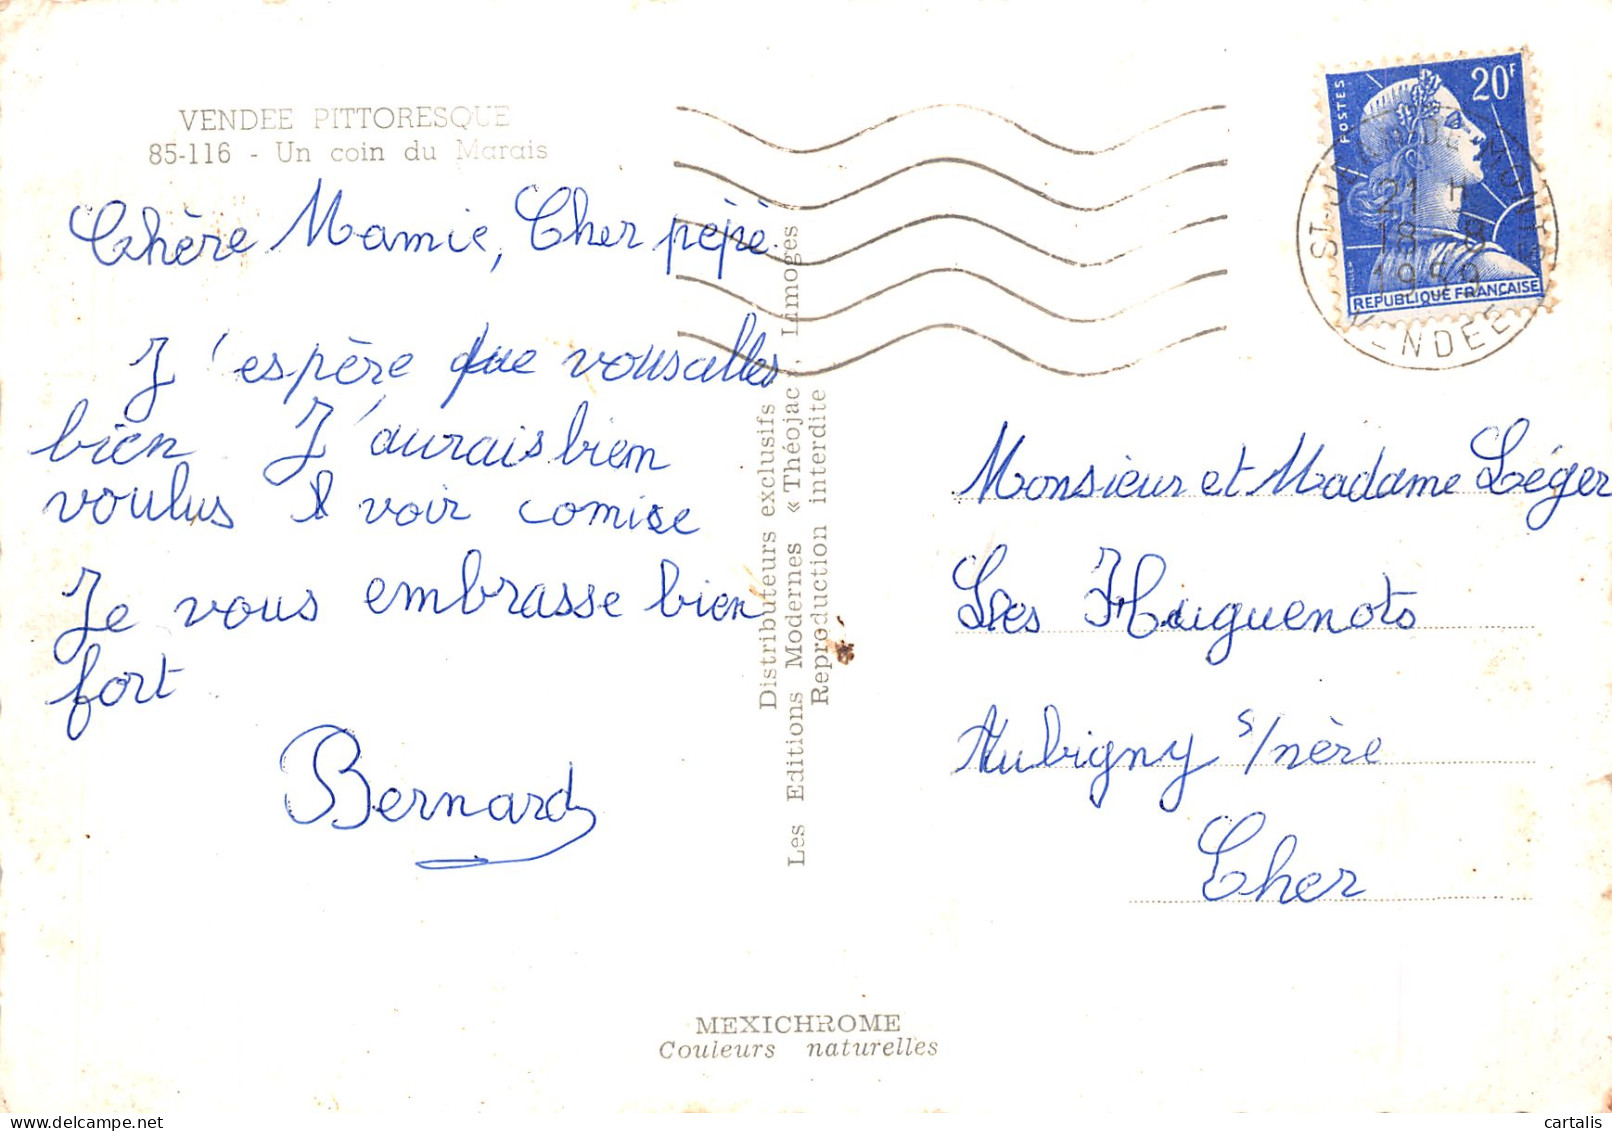 VENDEE PITTORESQUE
85-116 - Un coin du Marais
Chère Mamie, Cher pépé
J'espère que vous alles
bien J'aurais bien
voulus voir comise
Je vous embrasse bien
fort
Bernard
Distributeurs exclusifs
Les Editions Modernes « Théojac », Limoges
Reproduction interdite
POSTES
20F
REPUBLIQUE FRANÇAISE
ST-JEAN-DE-MONTS
21 H
18 - 8
1959
VENDEE
Monsieur et Madame Léger
Les Huguenots
Aubigny s/nère
Cher
MEXICHROME
Couleurs naturelles
cartalis